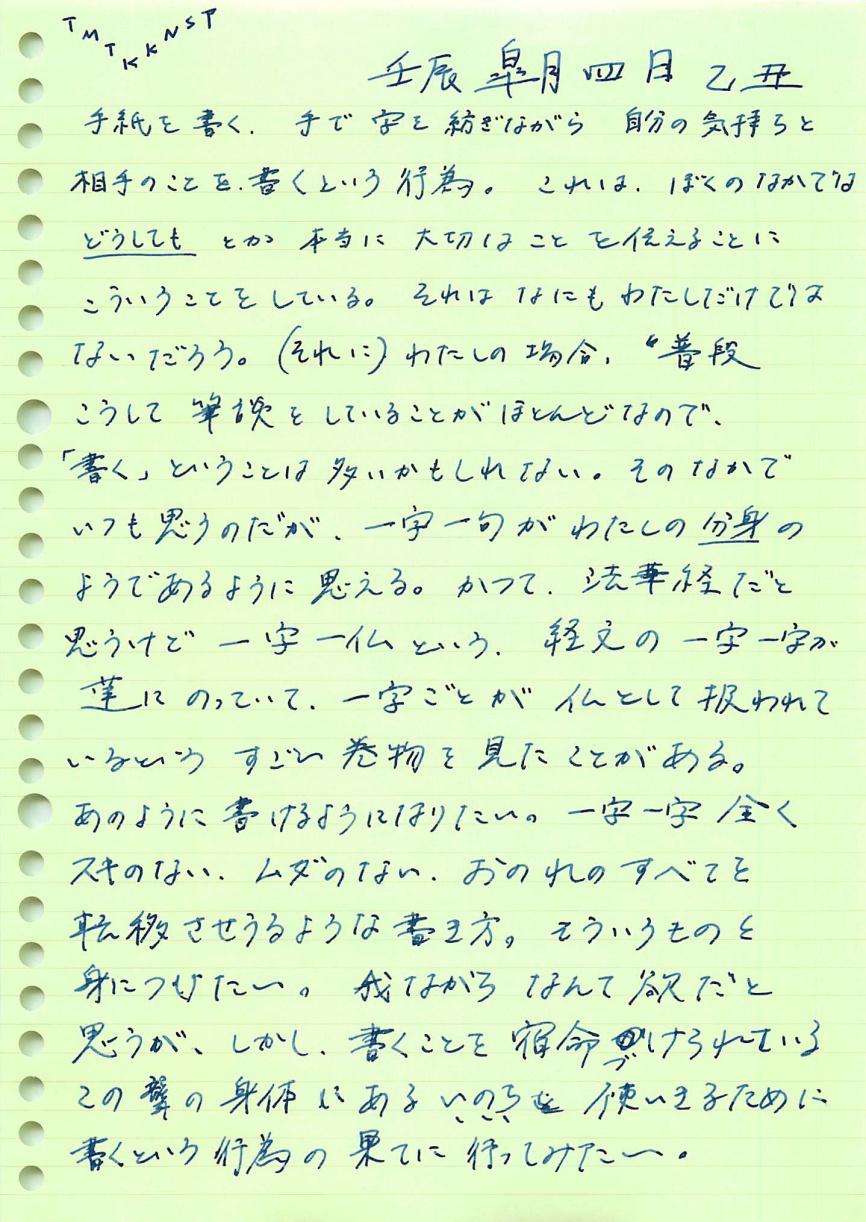 TMTKKNST
壬辰 皐月 四日 乙丑
手紙を書く. 手で字を紡ぎながら 自分の気持ちと
相手のことを.書くという行為。 これは. ぼくのなかでは
どうしても とか 本当に 大切なことを伝えることに
こういうことをしている。それはなにもわたしだけでは
ないだろう。(それに)わたしの場合, 普段
こうして筆談をしていることがほとんどなので、
「書く」ということは多いかもしれない。そのなかで
いつも思うのだが、一字一句がわたしの分身の
ようであるように思える。かつて、法華経だと
思うけど 一字一仏という. 経文の一字一字が
蓮にのっていて、一字ごとが仏として扱われて
いるという すごい巻物を見たことがある。
あのように書けるようになりたい。一字一字 全く
スキのない. ムダのない. おのれのすべてを
転移させうるような書き方。そういうものを
身につけたい。我ながらなんて欲だと
思うが、しかし、書くことを宿命づけられている
この聾の身体にあるいのちを使いきるために
書くという行為の果てに行ってみたい。